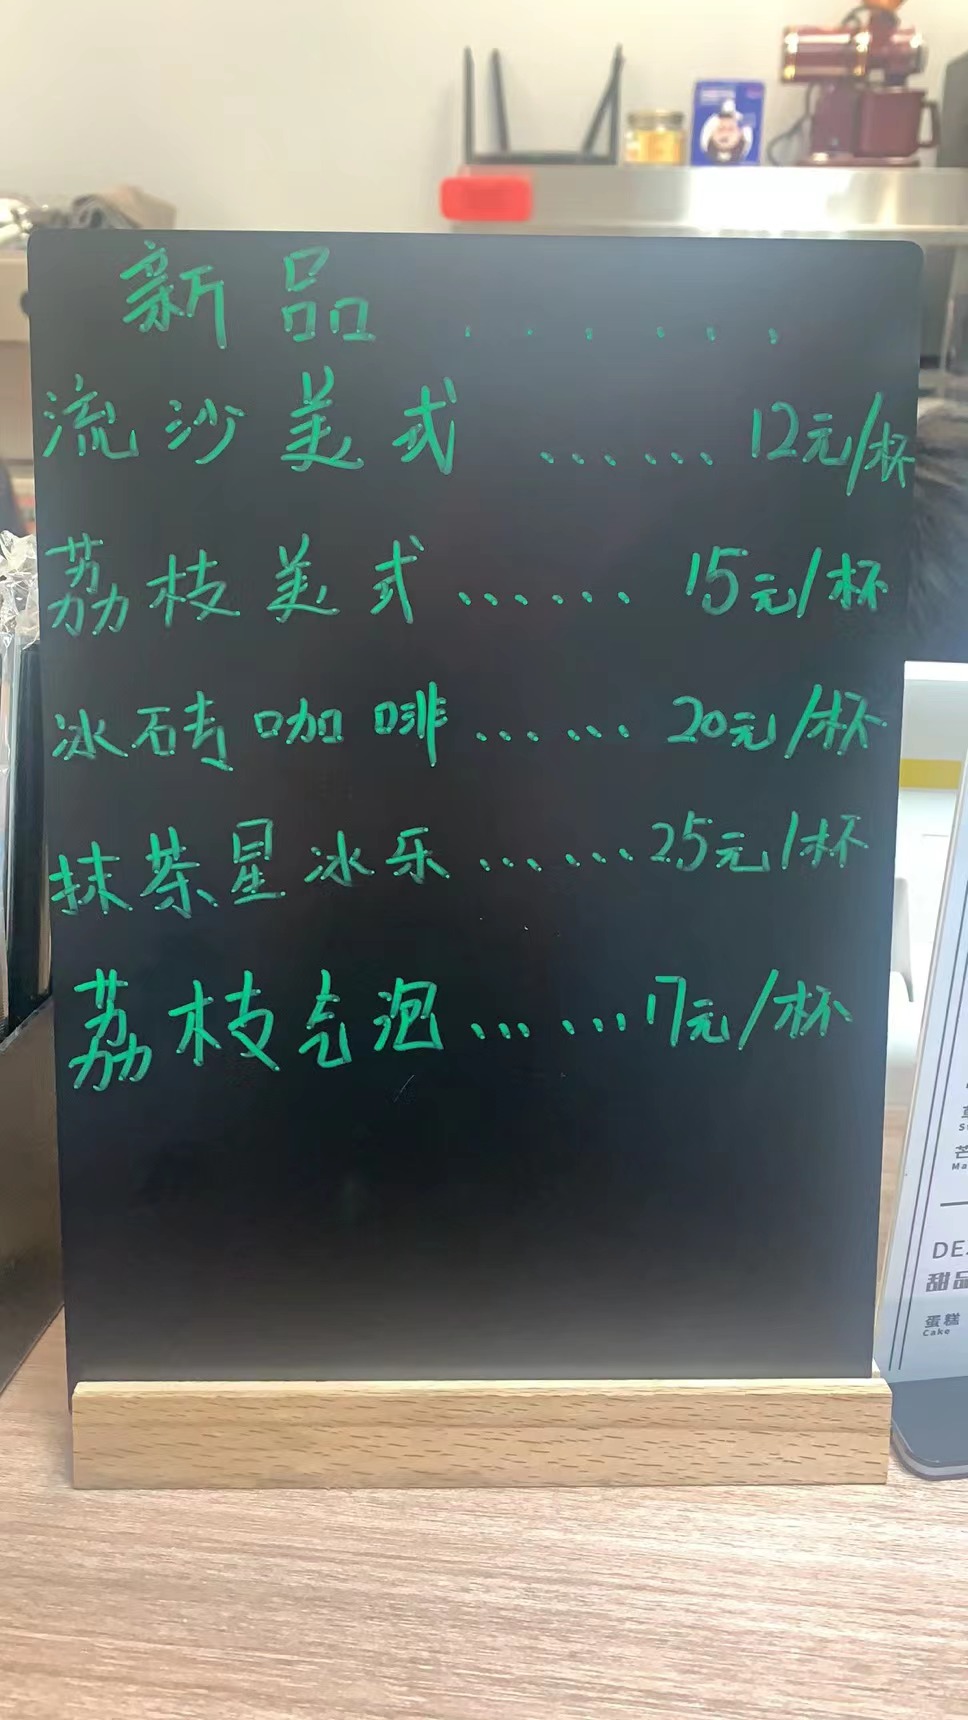 新品......
流沙美式......12元/杯
荔枝美式......15元/杯
冰砖咖啡......20元/杯
抹茶星冰乐......25元/杯
荔枝气泡......17元/杯
DE
甜品
蛋糕
Cake